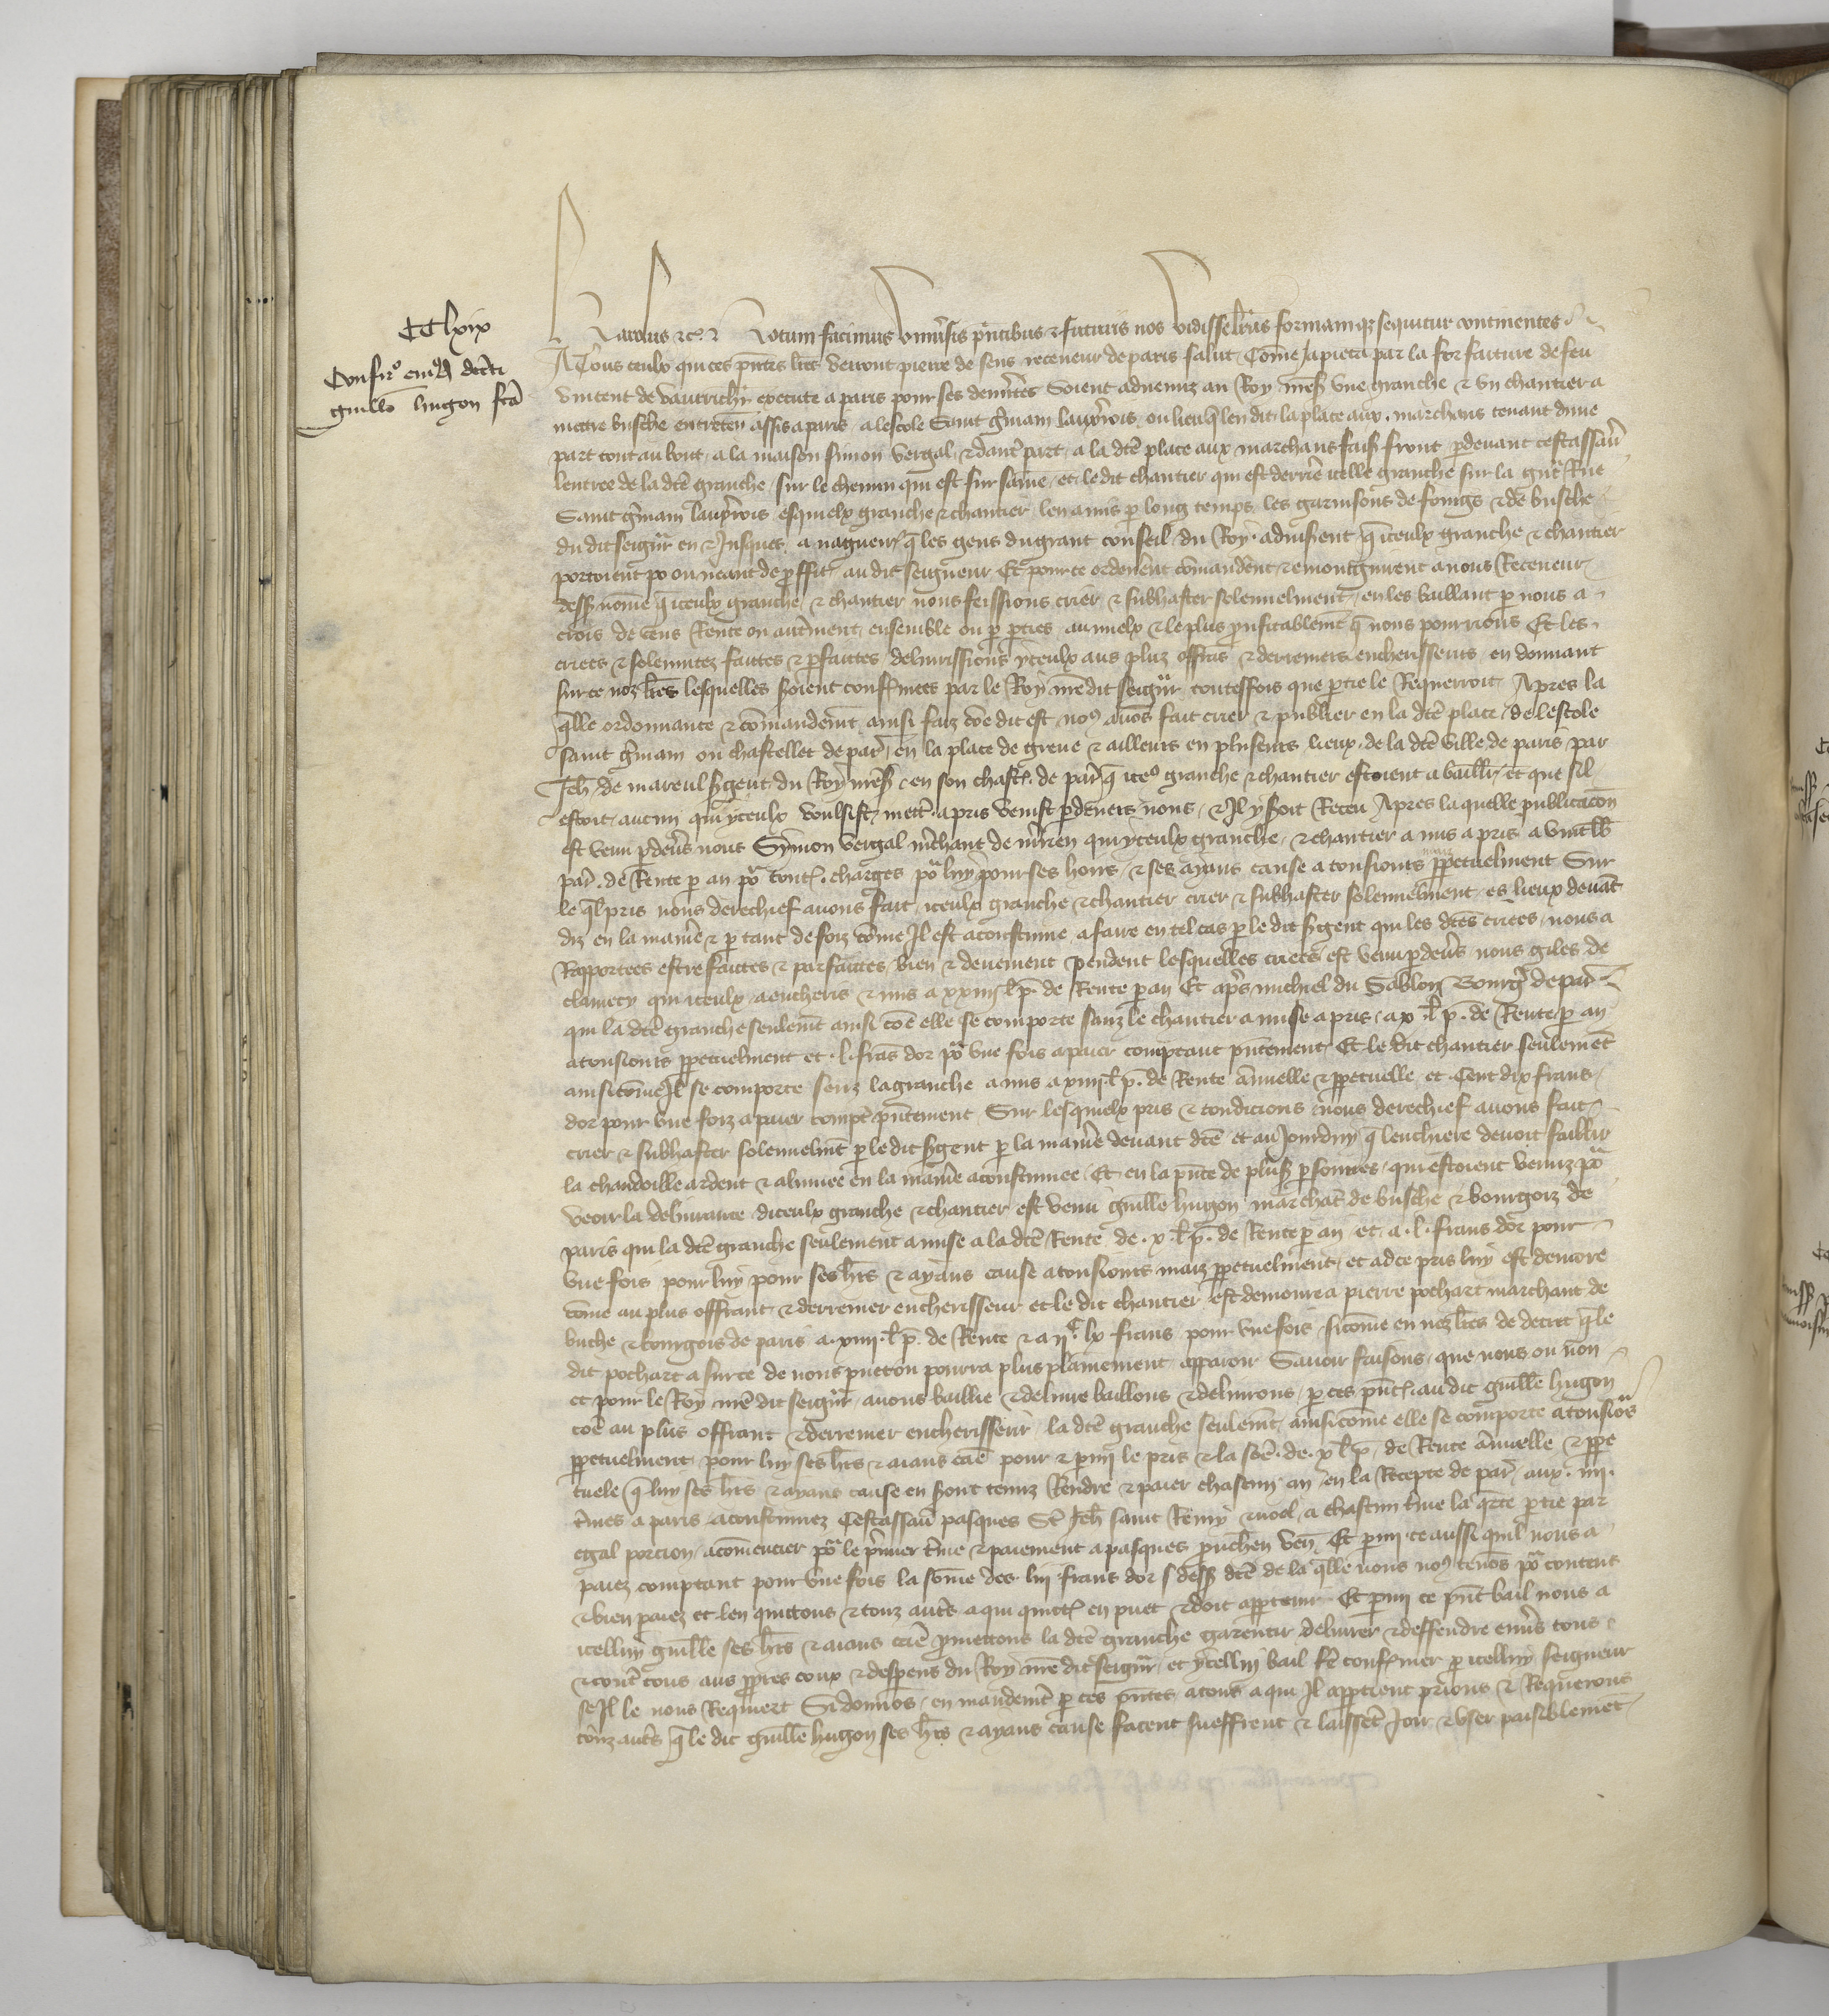 CC lxix
Confirmō cuiusdam decreti
guillō hugon fcā
Karolus etc̄ Notum facimus univ̄sis pn̄tibus et futuris nos vidisse lr̄as formam que sequitur continentes
A Tous ceulx qui ces pn̄tes lr̄es verront pierre de sens receveur de paris salut Cōme japieca par la forfaiture de feu
vincent de vautrichr̄ execute a paris pour ses demērites soient advenuz au Roy mess̄ une granche et un chantier a
mettre busche entreten̄ assis a paris a lescole Saint gr̄main laucr̄rois ou lieu q̄ len dit la place aux marchans tenant dune
part tout au bout a la maison simon vergal et dautr̄ part a la dcē place aux marchans fais front p devant cestassav̄
lentree de la dcē granche sur le chemin qui est sur saine et le dit chantier qui est derriē icelle granche sur la gr̄t Rue
Saint gr̄main laucr̄rois esquielx granche et chantier len a mis p long temps les garnisons de foings et de busche
du dit seigūr en et Jusques a naguer̄ q̄ les gens du grant conseil du Roy advisērent q̄ iceulx granche et chantier
portoient po ou neant de p̄ffit au dit seigneur Et pour ce ordenērent cōmandērent et enioingnirent a nous Receveur
dess̄ nōme q̄ iceulx granche et chantier nous feissions crier et subhaster solennelment en les baillant p nous a
crois de cens Rente ou autr̄ment ensemble ou p pties au mielx et le plus p̄ufitablemēt q̄ nous pourrions Et les
criees et solennitez faictes et pfaictes delivrissions yceulx aus pluz offrās et derreniers encherisseurs en donnant
sur ce noz lr̄es lesquelles soient conf̄mees par le Roy mē dit seigūr toutesfois que ptie le Requerroit Apres la
q̄lle ordonnance et cōmandemēt ainsi faiz cōe dit est no9 avōs fait crier et publier en la dcē place de lescole
saint gr̄main ou chastellet de par̄ en la place de greve et ailleurs en plusieurs lieux de la dcē ville de paris par
Jeh̄ de mareul sr̄gent du Roy mess̄ en son chastl̄ de par̄ q̄ ice9 granche et chantier estoient a baillr̄ et que sil
estoit aucun qui yceulx voulsist mettr̄ a pris venist p devers nous et Il y soit Receu Apres la quelle publicacōn
est venu p dev̄s nous Symon vergal mr̄chant de mr̄rien qui yceulx granche et chantier a mis a pris a vint lb̄
par̄ de Rente p an po͛ toutes charges po͛ luy pour ses hoirs et ses ayans cause a tousjours maiz ppetuelment Sur
le q̄l pris nous derechief avons fait iceulx granche et chantier crier et subhaster solennelment es lieux devāt
diz en la maniē et p tant de foiz cōme Il est acoustume a faire en tel cas p le dit sr̄gent qui les dcēs criees nous a
Rapportees estre faictes et parfaictes bien et deuement Pendent lesquelles criees est venu p dev̄s nous giles de
clamecy qui iceulx a encheris et mis a xxiiii l̄ p̄ de Rente p an Et apr̄s michiel du Sablon Bourḡ de par̄
qui la dcē granche seulemēt ainsi cōe elle se comporte sanz le chantier a mise a pris a x l̄ p̄ de Rente p an
a tousjours ppetuelment et l frās dor po͛ une fois a paier comptant pn̄tement Et le dit chantier seulemēt
ainsi cōme Il se comporte senz la granche a mis a xiiii l̄ p̄ de Rente ānnuelle et ppetuelle et Cent dix frans
dor pour une foiz a paier compt̄ pn̄tement Sur lesquielx pris et condicions nous derechief avons fait
crier et subhaster solennelmēt p le dit sr̄gent p la maniē devant dcē et au Jourduy q̄ lenchiere devoit faillir
la chandoille ardent et alumee en la maniē acoustumee Et en la pn̄ce de pluss̄ psonnes qui estoient venuz po͛
veoir la delivrance diceulx granche et chantier est venu guille hugon marchāt de busche et bourgoiz de
paris qui la dcē granche seulement a mise a la dcē Rente de x l̄ p̄ de Rente p an et a l frans dor pour
une fois pour luy pour ses hr̄s et ayans cause a tousjours maiz ppetuelment et ad ce pris luy est demore
cōme au plus offrant et derrenier encherisseur et le dit chantier est demoure a pierre pochart marchant de
buche et bourgois de paris a xiiii l̄ p̄ de Rente et a iiC lx frans pour une fois sicōme en noz lr̄es de decret q̄ le
dit pochart a sur ce de nous pn̄t ou pourra plus plainement apparoir Savoir faisons que nous ou nōn
et pour le Roy mē dit seigūr avons baillie et delivre baillons et delivrons p ces pn̄tes au dit guille hugon
cōe au plus offrant et derrenier encherisseur la dcē granche seulemēt ainsi cōme elle se comporte a tousiōrs
ppetuelment pour luy ses hr̄s et aians caē pour et pmy le pris et la sōē de x l̄ p̄ de Rente ānnuelle et ppe
tuele q̄ luy ses hr̄s et ayans cause en sont tenuz Rendre et paier chascun an en la Recepte de par̄ aux iiii
tr̄mes a paris acoustumez Cestassav̄ pasques St̄ Jeh̄ saint Remy et noel a chascun tr̄me la qr̄te ptie par
egal porcion a cōmencier po͛ le pr̄mier tr̄me et paiement a pasques prouch̄en ven̄ Et pmi ce aussi quil nous a
paiez comptant pour une fois la sōme des lii frans dor dess̄ dcē de la q̄lle nous no9 tenōs po͛ contens
et bien paiez et len quittons et touz autr̄s a qui quictā en puet et doit appartenir Et pmi ce pn̄t bail nous a
icelluy guille ses hr̄s et aians caē p̄mettons la dcē granche garentir delivrer et deffendre env̄s tous
et contr̄ tous aus ppres coux et despens du Roy mē dit seigūr et ycelluy bail fē conf̄mer p icelluy seigneur
se Il le nous Requiert Si donnōs en mandemēt p ces pn̄tes a tous a qui Il appartient prions et Requerons
touz autr̄s q̄ le dit guille hugon ses hr̄s et ayans cause facent sueffrent et laissēt Joir et user paisiblemēt